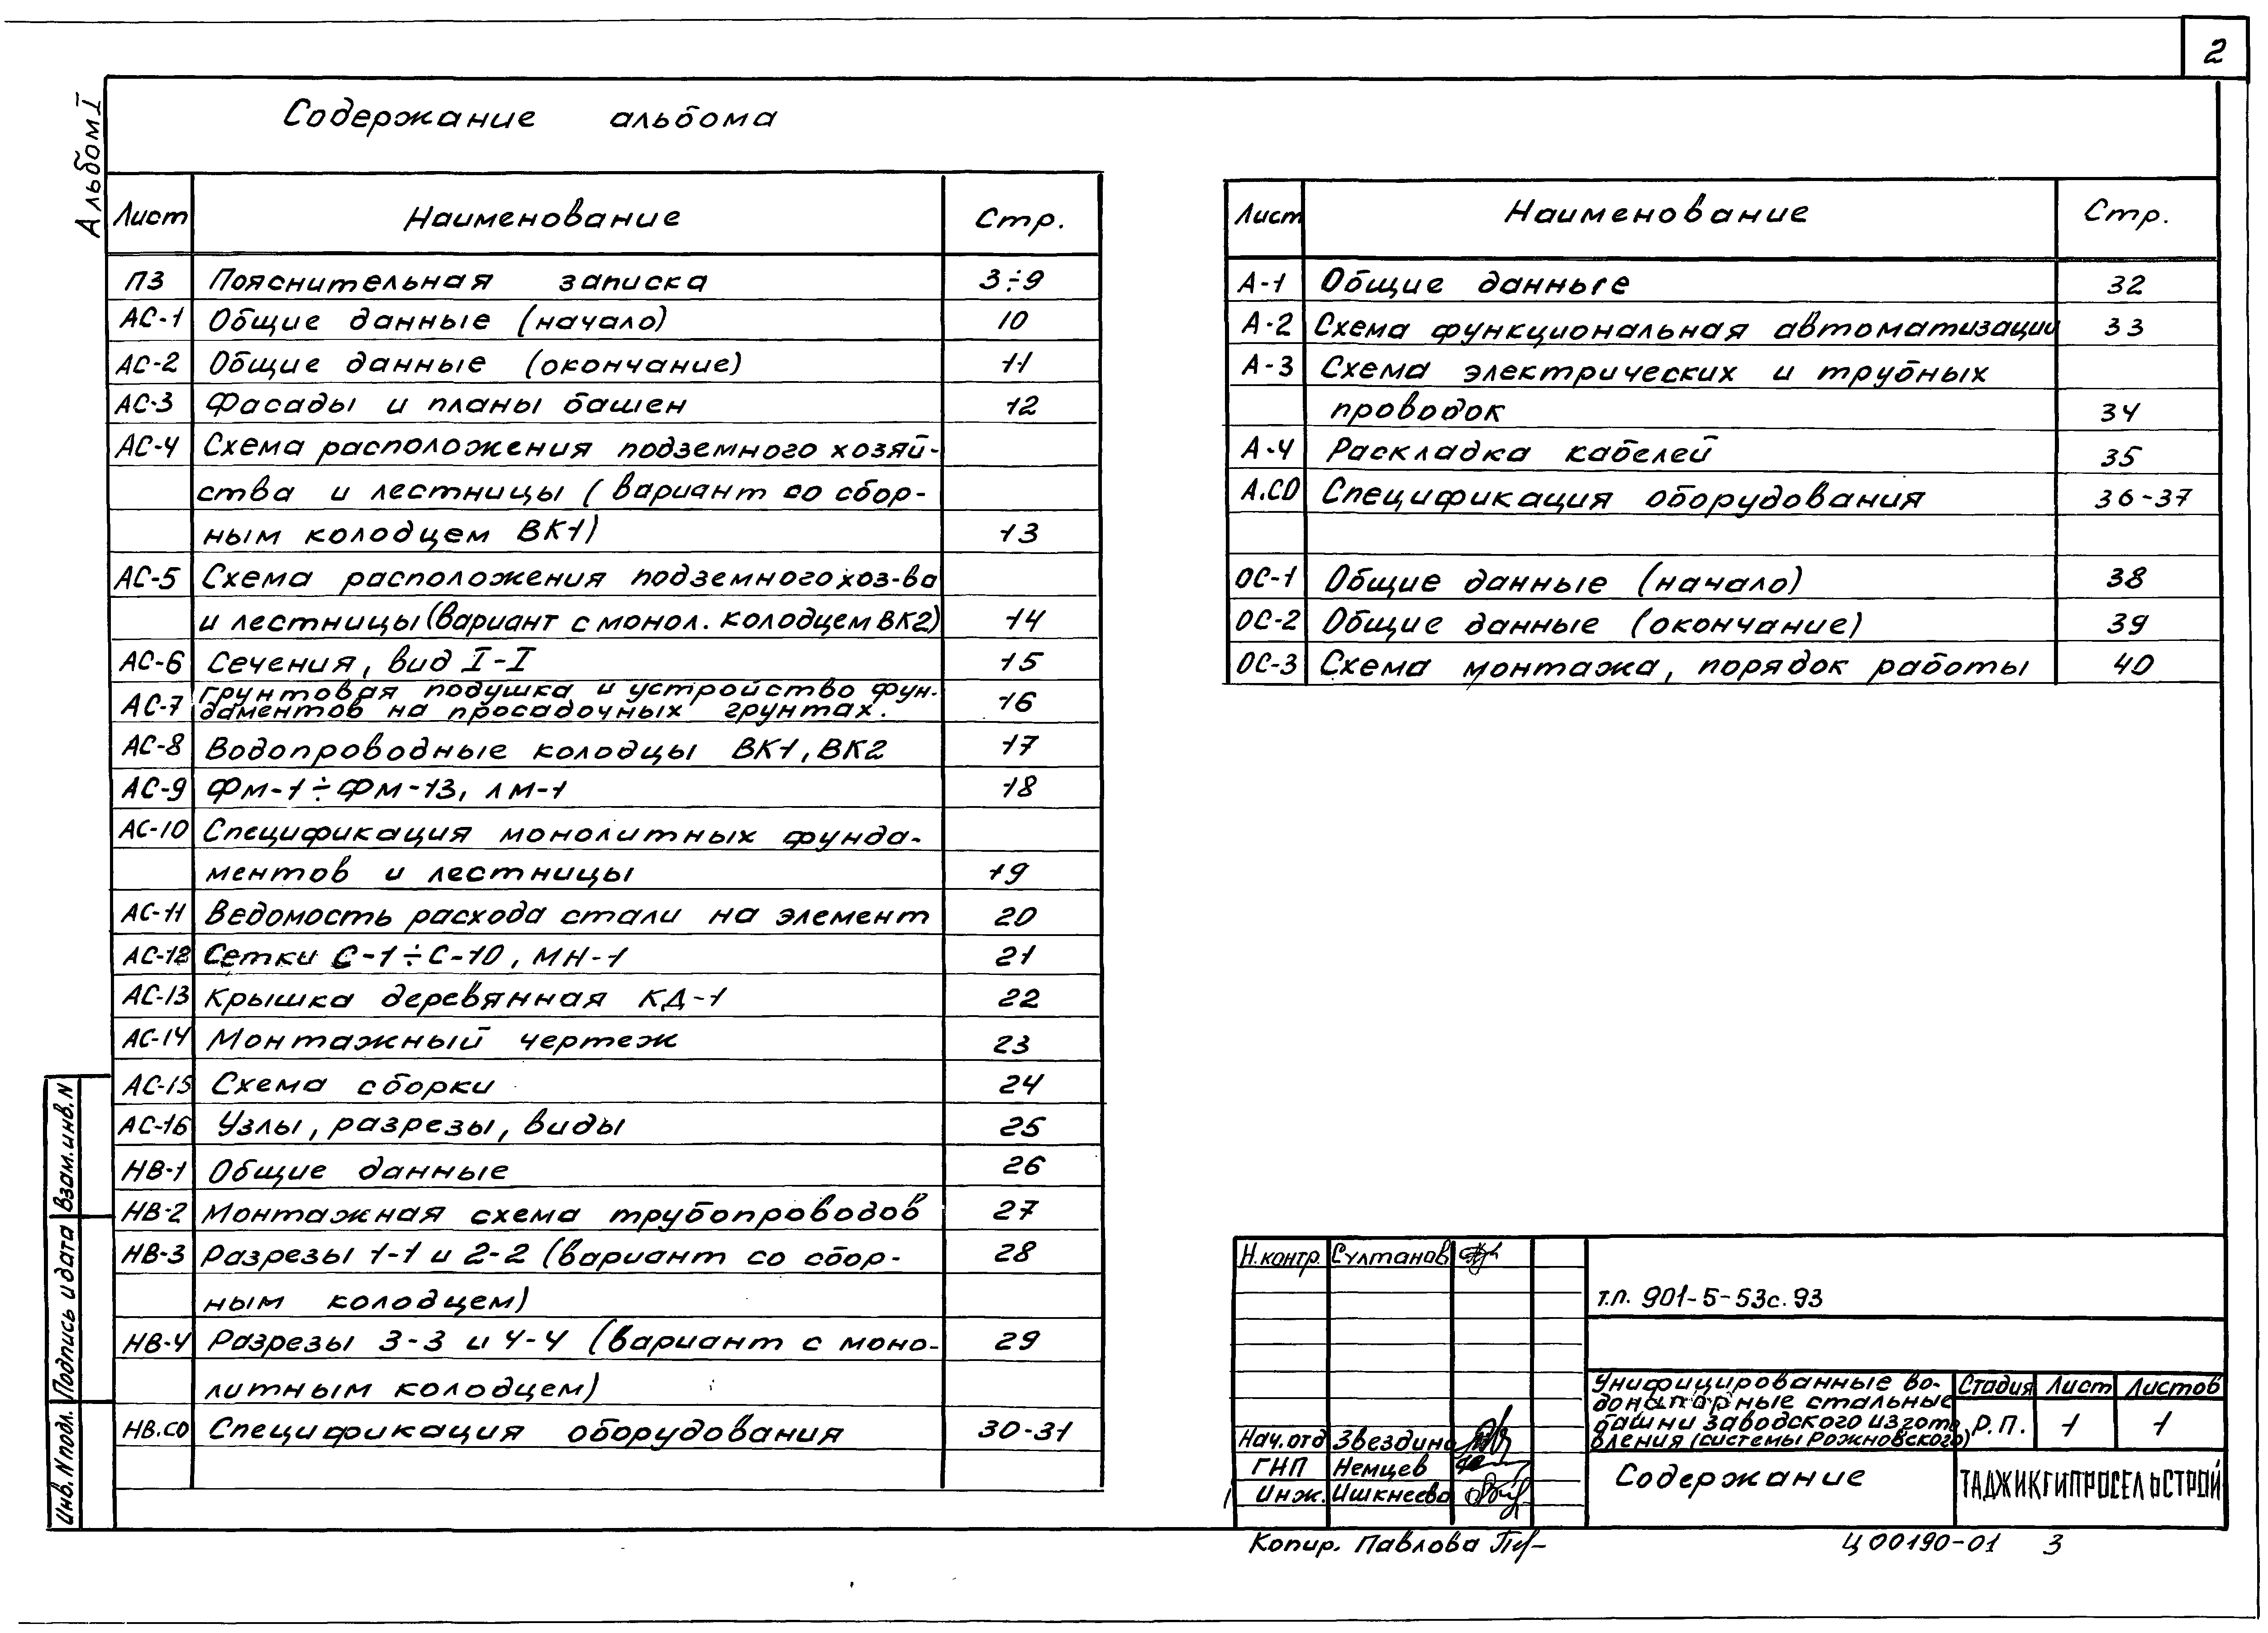 2
Альбом I
Содержание альбома
Лист Наименование Стр.
ПЗ Пояснительная записка 3÷9
АС-1 Общие данные (начало) 10
АС-2 Общие данные (окончание) 11
АС-3 Фасады и планы башен 12
АС-4 Схема расположения подземного хозяй-
ства и лестницы (вариант со сбор-
ным колодцем ВК1) 13
АС-5 Схема расположения подземного хоз-ва
и лестницы (вариант с монол. колодцем ВК2) 14
АС-6 Сечения, вид I-I 15
АС-7 Грунтовая подушка и устройство фун-
даментов на просадочных грунтах. 16
АС-8 Водопроводные колодцы ВК1, ВК2 17
АС-9 Фм-1÷Фм-13, лм-1 18
АС-10 Спецификация монолитных фунда-
ментов и лестницы 19
АС-11 Ведомость расхода стали на элемент 20
АС-12 Сетки С-1÷С-10, МН-1 21
АС-13 Крышка деревянная КД-1 22
АС-14 Монтажный чертеж 23
АС-15 Схема сборки 24
АС-16 Узлы, разрезы, виды 25
НВ-1 Общие данные 26
НВ-2 Монтажная схема трубопроводов 27
НВ-3 Разрезы 1-1 и 2-2 (вариант со сбор- 28
ным колодцем)
НВ-4 Разрезы 3-3 и 4-4 (вариант с моно- 29
литным колодцем)
НВ.СО Спецификация оборудования 30-31
Лист Наименование Стр.
А-1 Общие данные 32
А-2 Схема функциональная автоматизации 33
А-3 Схема электрических и трубных
проводок 34
А-4 Раскладка кабелей 35
А.СО Спецификация оборудования 36-37
ОС-1 Общие данные (начало) 38
ОС-2 Общие данные (окончание) 39
ОС-3 Схема монтажа, порядок работы 40
Взам. инв. N
Подпись и дата
Инв. N подл.
Н.контр. Султанов
Нач.отд Звездина
ГНП Немцев
Инж. Ишкнеева
т.п. 901-5-53с.93
Унифицированные во-
донапорные стальные
башни заводского изгото
вления (системы Рожновского)
Стадия Лист Листов
Р.П. 1 1
Содержание
ТАДЖИКГИПРОСЕЛЬСТРОЙ
Копир. Павлова
Ц00190-01 3